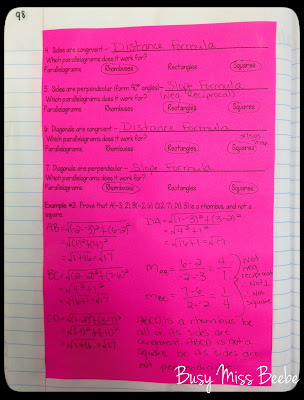 98
4. Sides are congruent - Distance Formula
Which parallelograms does it work for?
Parallelograms Rhombuses Rectangles Squares
5. Sides are perpendicular (form 90° angles) - Slope Formula
(Neg. Reciprocal)
Which parallelograms does it work for?
Parallelograms Rhombuses Rectangles Squares
6. Diagonals are congruent - Distance Formula
Which parallelograms does it work for?
Parallelograms Rhombuses Rectangles Squares
7. Diagonals are perpendicular - Slope Formula
Which parallelograms does it work for?
Parallelograms Rhombuses Rectangles Squares
is a rhombus and not a
square.
= √16+1 = √17
= √1+16 = √17
BC = √(2--2)²+(7-6)²
= √4²+1²
= √16+1 = √17
= √1+16 = √17
Not
neg
reciprocals
Not ⊥
Not
Square
ABCD is a rhombus bc
all 4 its sides are
congruent. ABCD is not a
square bc its sides are
not perpendicular
Busy Miss Beebe